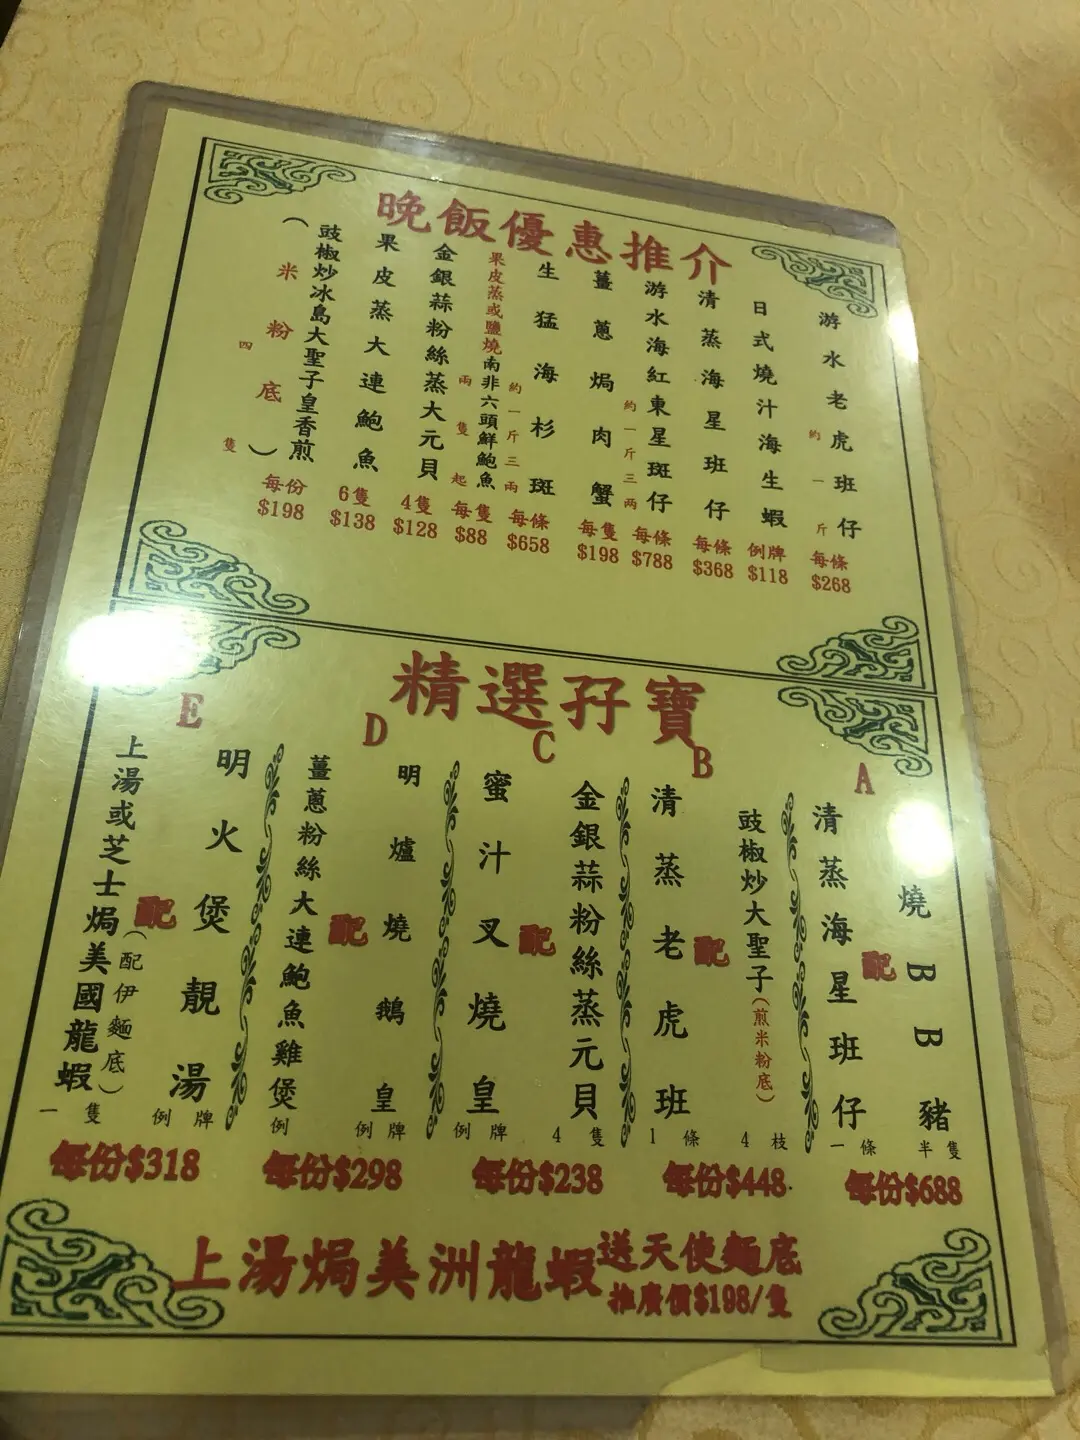 晚飯優惠推介
游水老虎班仔
約一斤
每條
$268
日式燒汁海生蝦
例牌
$118
清蒸海星班仔
每條
$368
游水海紅東星斑仔
約一斤三两
每條
$788
薑蔥焗肉蟹
每隻
$198
生猛海杉斑
約一斤三兩
每條
$658
果皮蒸或鹽燒南非六頭鮮鮑魚
兩隻起
每隻
$88
金銀蒜粉絲蒸大元貝
4隻
$128
果皮蒸大連鮑魚
6隻
$138
豉椒炒冰島大聖子皇香煎
(米粉底)
四隻
每份
$198
精選孖寶
A
燒BB豬
半隻
配
清蒸海星班仔
一條
每份$688
B
豉椒炒大聖子(煎米粉底)
4枝
配
清蒸老虎班
1條
每份$448
C
金銀蒜粉絲蒸元貝
4隻
配
蜜汁叉燒皇
例牌
每份$238
D
明爐燒鵝皇
例牌
配
薑蔥粉絲大連鮑魚雞煲
例
每份$298
E
明火煲靚湯
例牌
配
上湯或芝士焗美國龍蝦
(配伊麵底)
一隻
每份$318
上湯焗美洲龍蝦送天使麵底
推廣價$198/隻